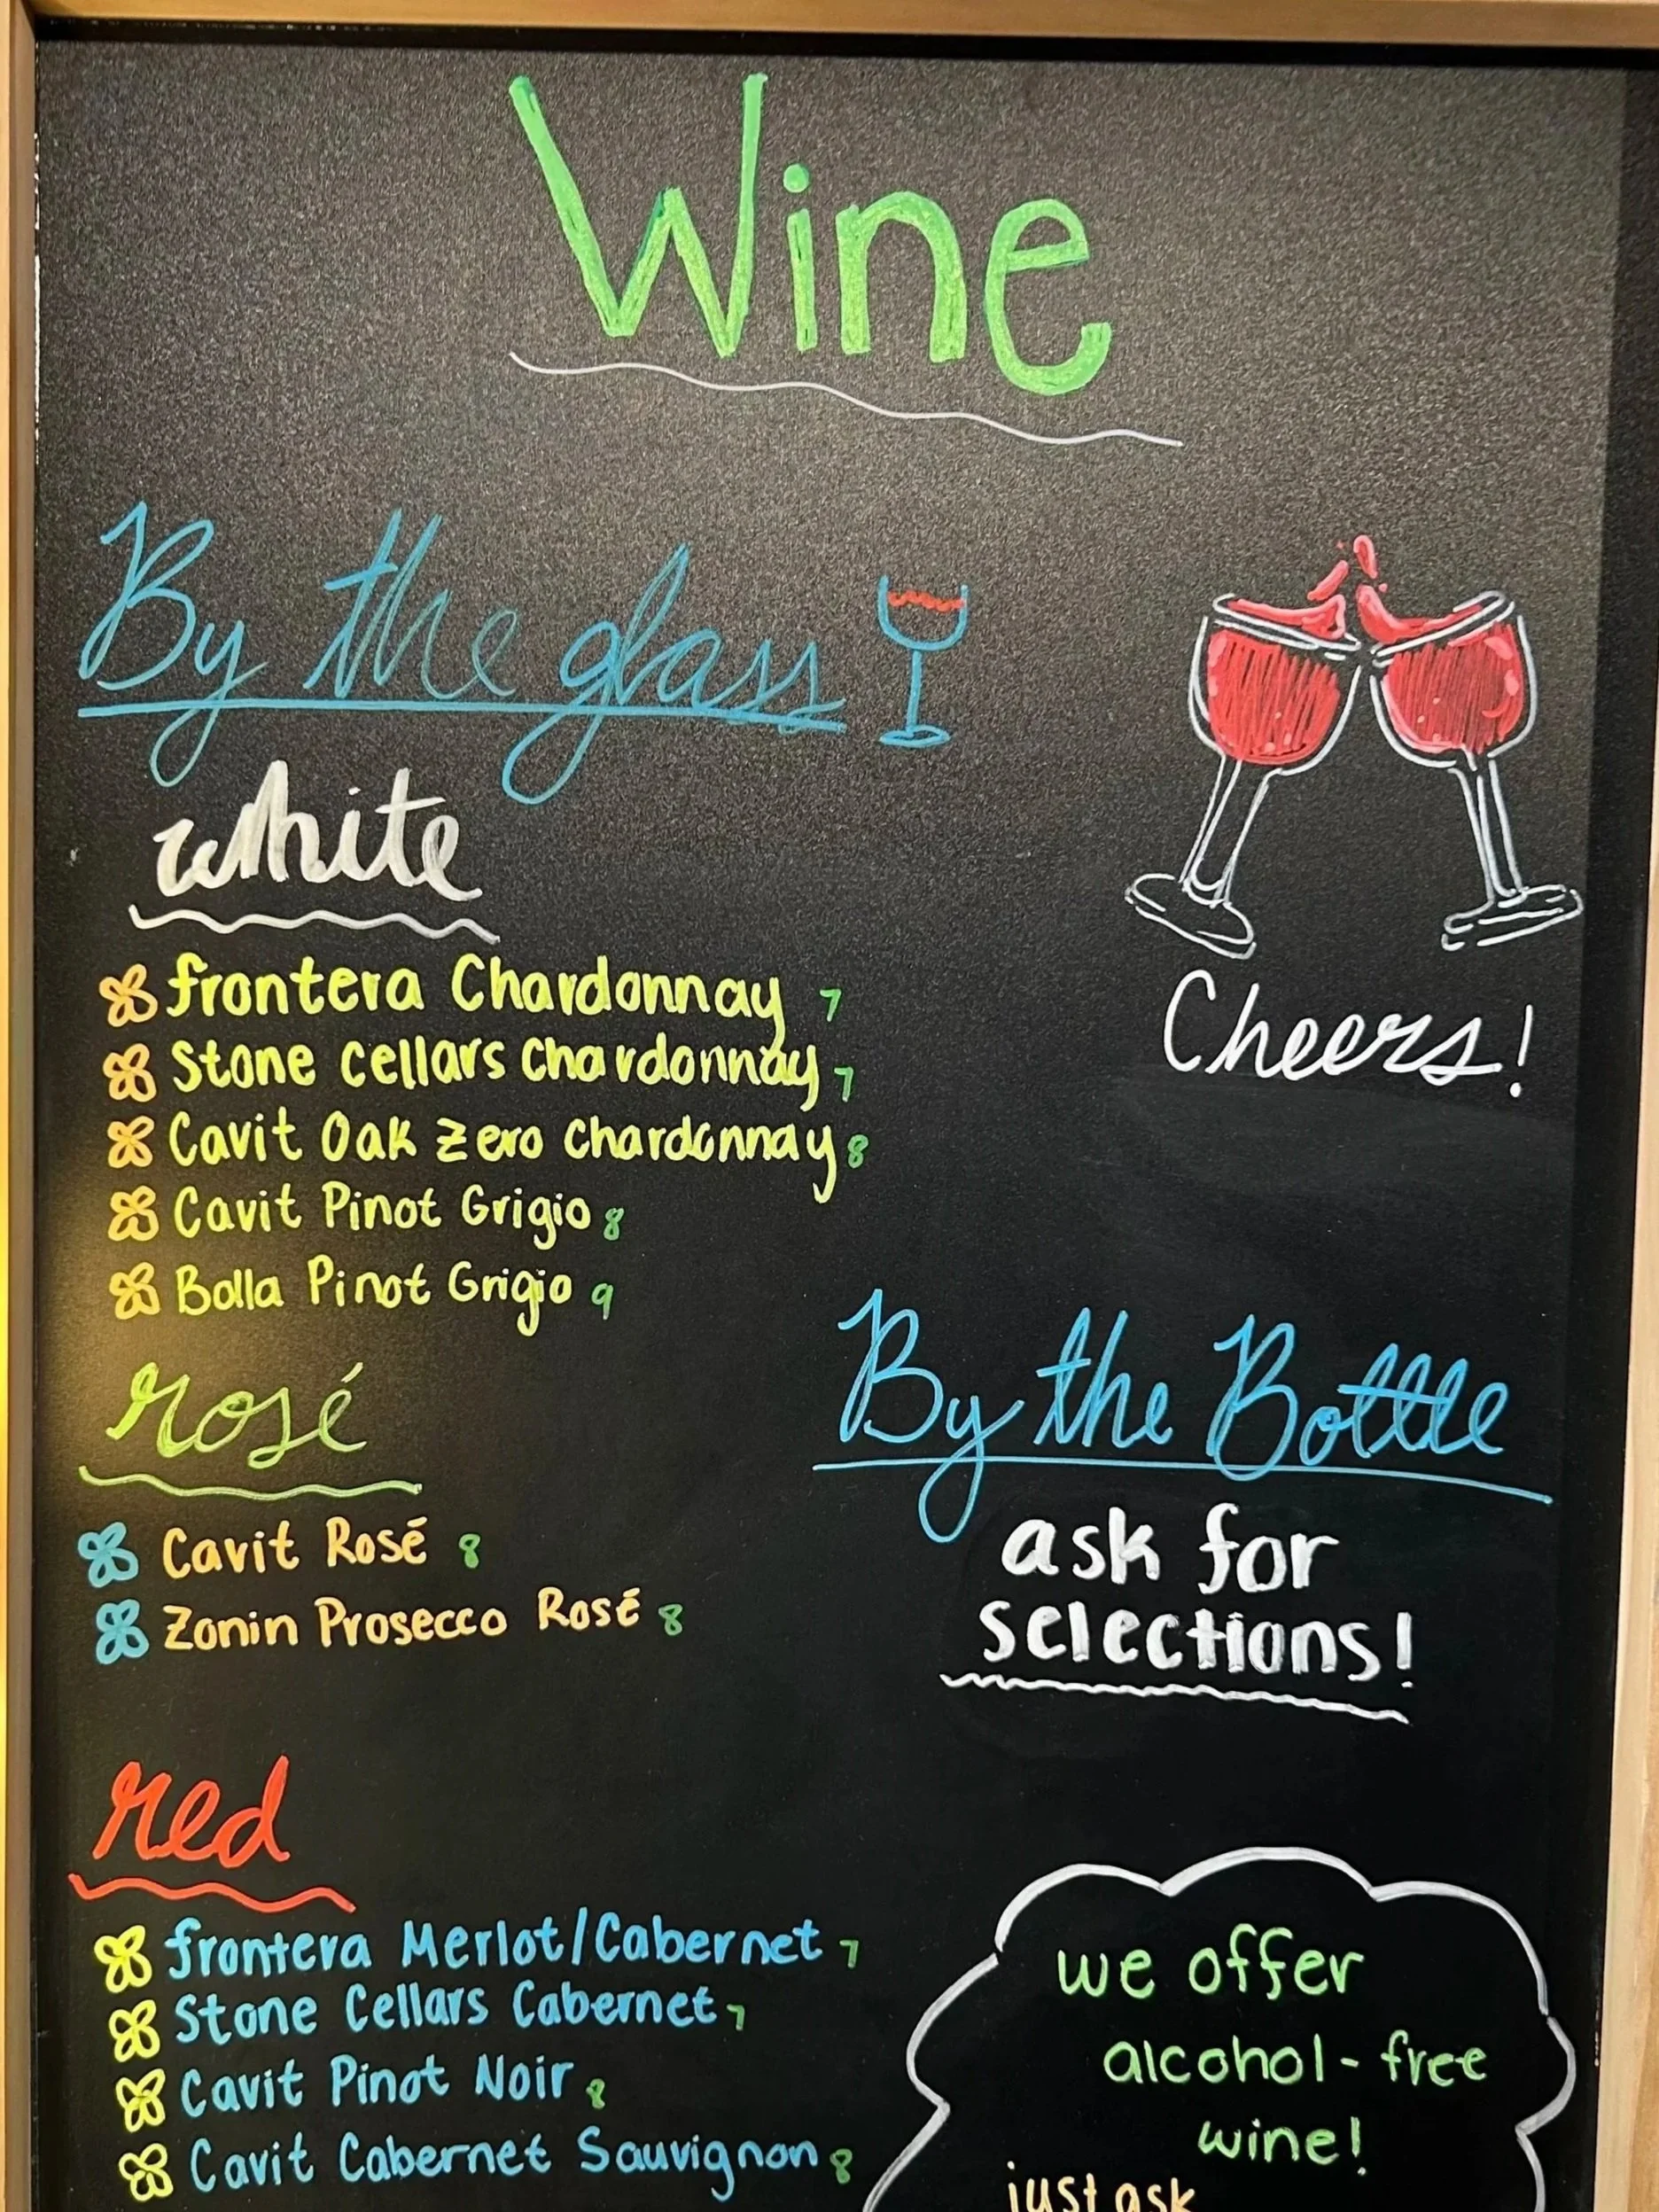 Wine
By the glass
white
frontera Chardonnay 7
Stone Cellars Chardonnay 7
Cavit Oak Zero Chardonnay 8
Cavit Pinot Grigio 8
Bolla Pinot Grigio 9
rosé
Cavit Rosé 8
Zonin Prosecco Rosé 8
red
frontera Merlot/Cabernet 7
Stone Cellars Cabernet 7
Cavit Pinot Noir 8
Cavit Cabernet Sauvignon 8
Cheers!
By the Bottle
ask for
selections!
we offer
alcohol-free
wine!
just ask